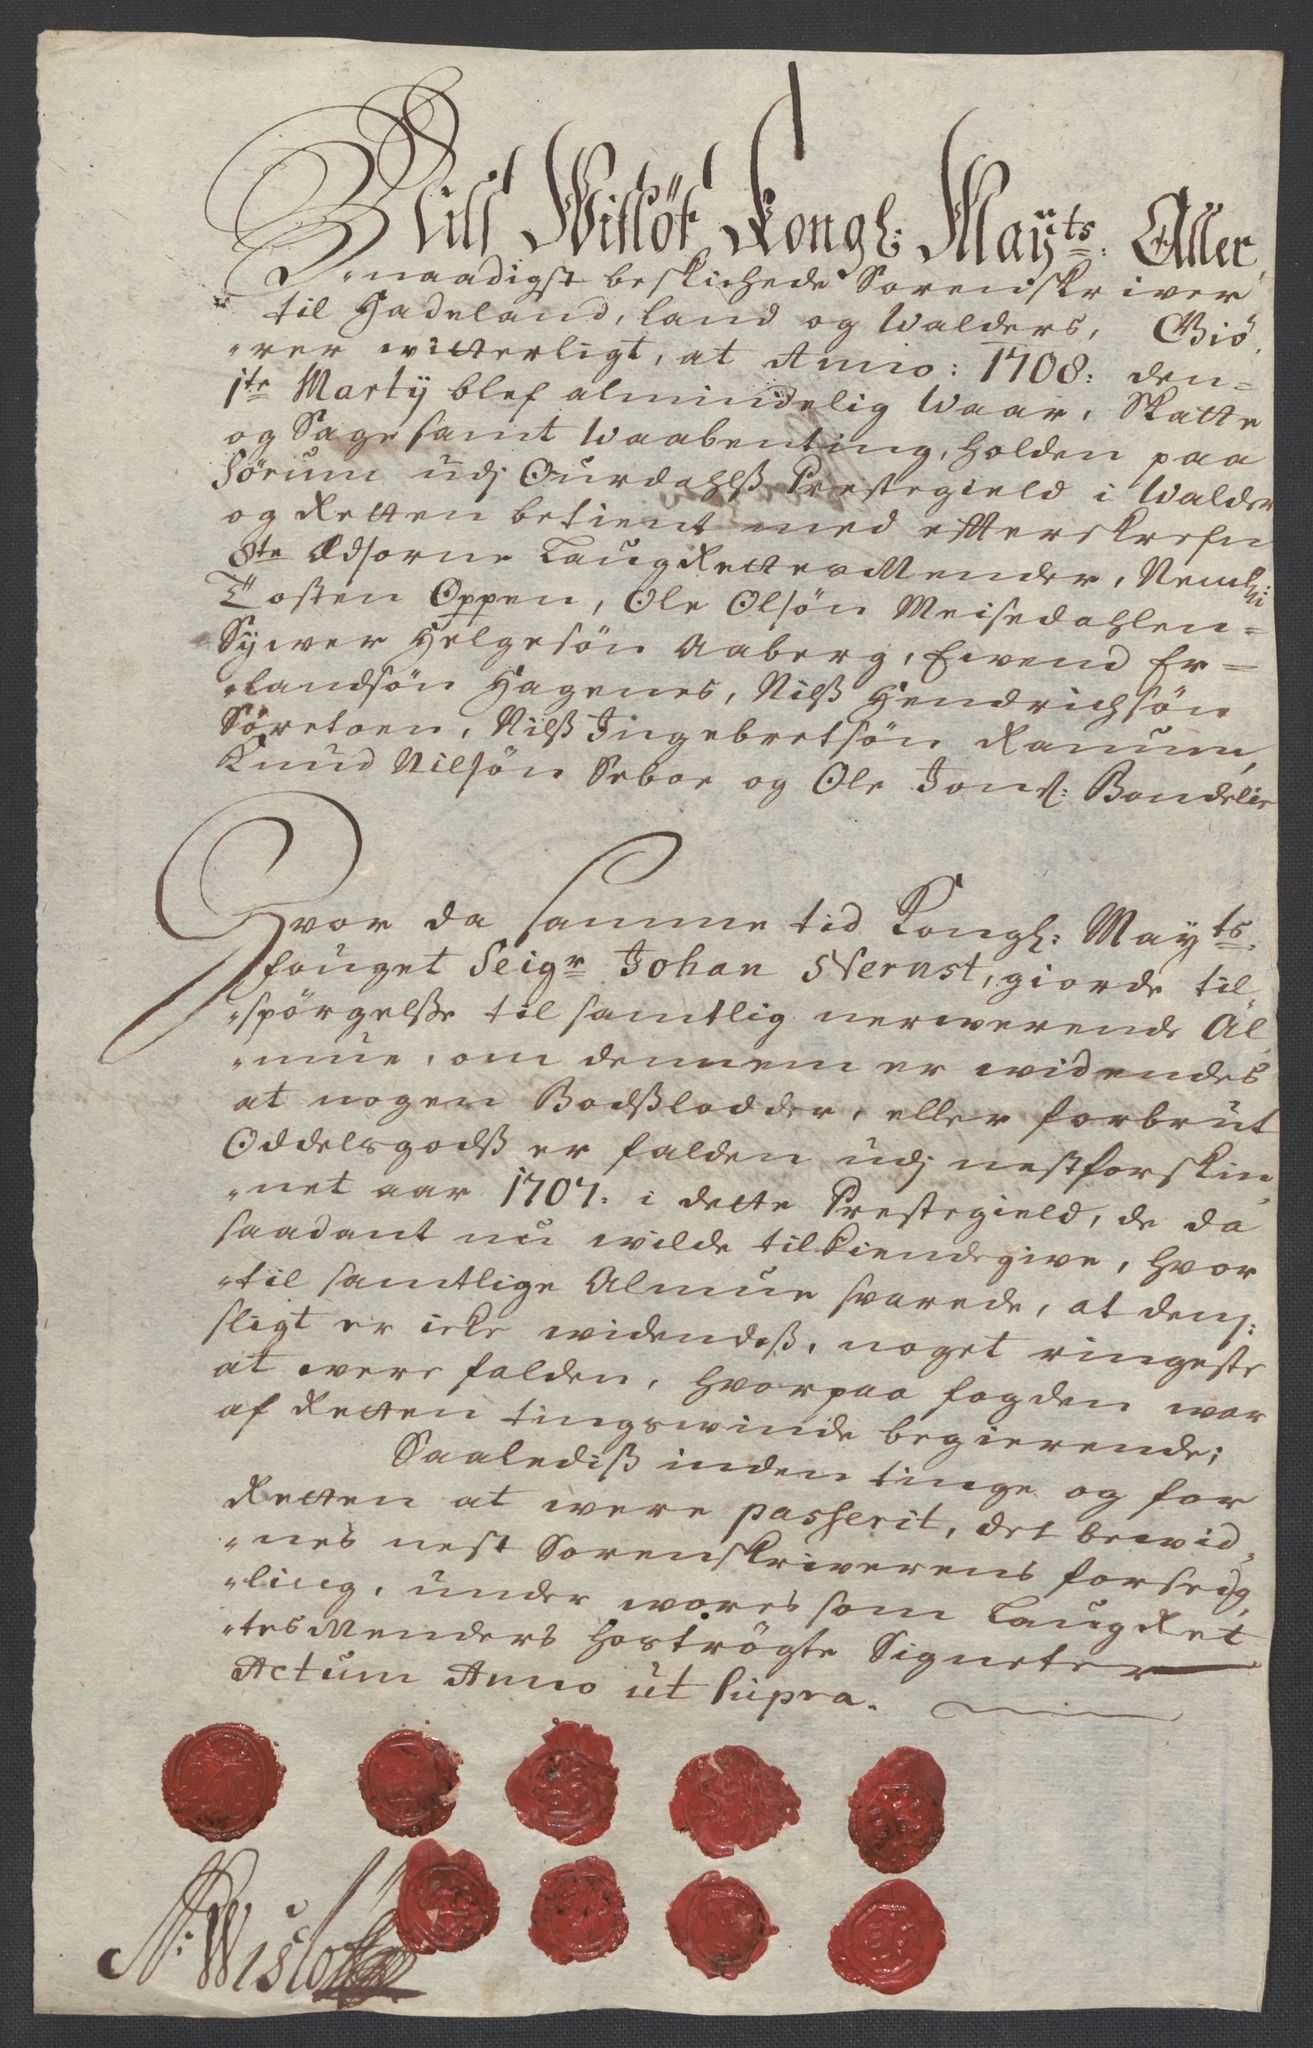 Nills Wislöf Kongl: Mayts: Aller,
"naadigst beskichede Sorenskriver
til Hadeland, land og Walders, Giö,
"rer witterligt, at Anno: 1708: den=
1te Martij blef almindelig Waar, Skatte
og Sage samt Waabenting, holden paa
Sörum udj Ourdahlß Prestegield i Walders
og Retten betient med effterskrefn
8te Edsorne LaugRettesMender, Nemlig:
Tosten Oppen, Ole Olsön Meisedahlen=
Sywer Helgesön Aaberg, Ewend Er=
"landsön Hagenes, Nilß Hendrichsön
Söretoen, Nilß Ingebretsön Ranum,
Knud Nilsön Seboe og Ole Jonß: Bondelie
Hvor da samme tid Kongl: Mayts:
fouget Seigr Johan Nernst, giorde til,
"spörgelße til samtlig nerwerende Al,
"mue, om dennem er widendes
at nogen Bodßlodder, eller forbrut
Oddelsgodß er falden udj nestforskin,
"net aar 1707: i dette Prestegield, de da
saadant nu wilde tilkiendegive, hvor
"til samtlige Almue svarede, at denß:
sligt er icke widendeß, noget ringeste
at were falden, hvorpaa fogden war
af Retten tingswinde begierende;
Saalediß inden tinge og for
Retten at were passerit, det bewid,
"nes nest Sorenskriwerens forseig,
"ling, under wores som LaugRet
"tesMenders hoströgte Signeter
Actum Anno ut supra.
N: Wislöf